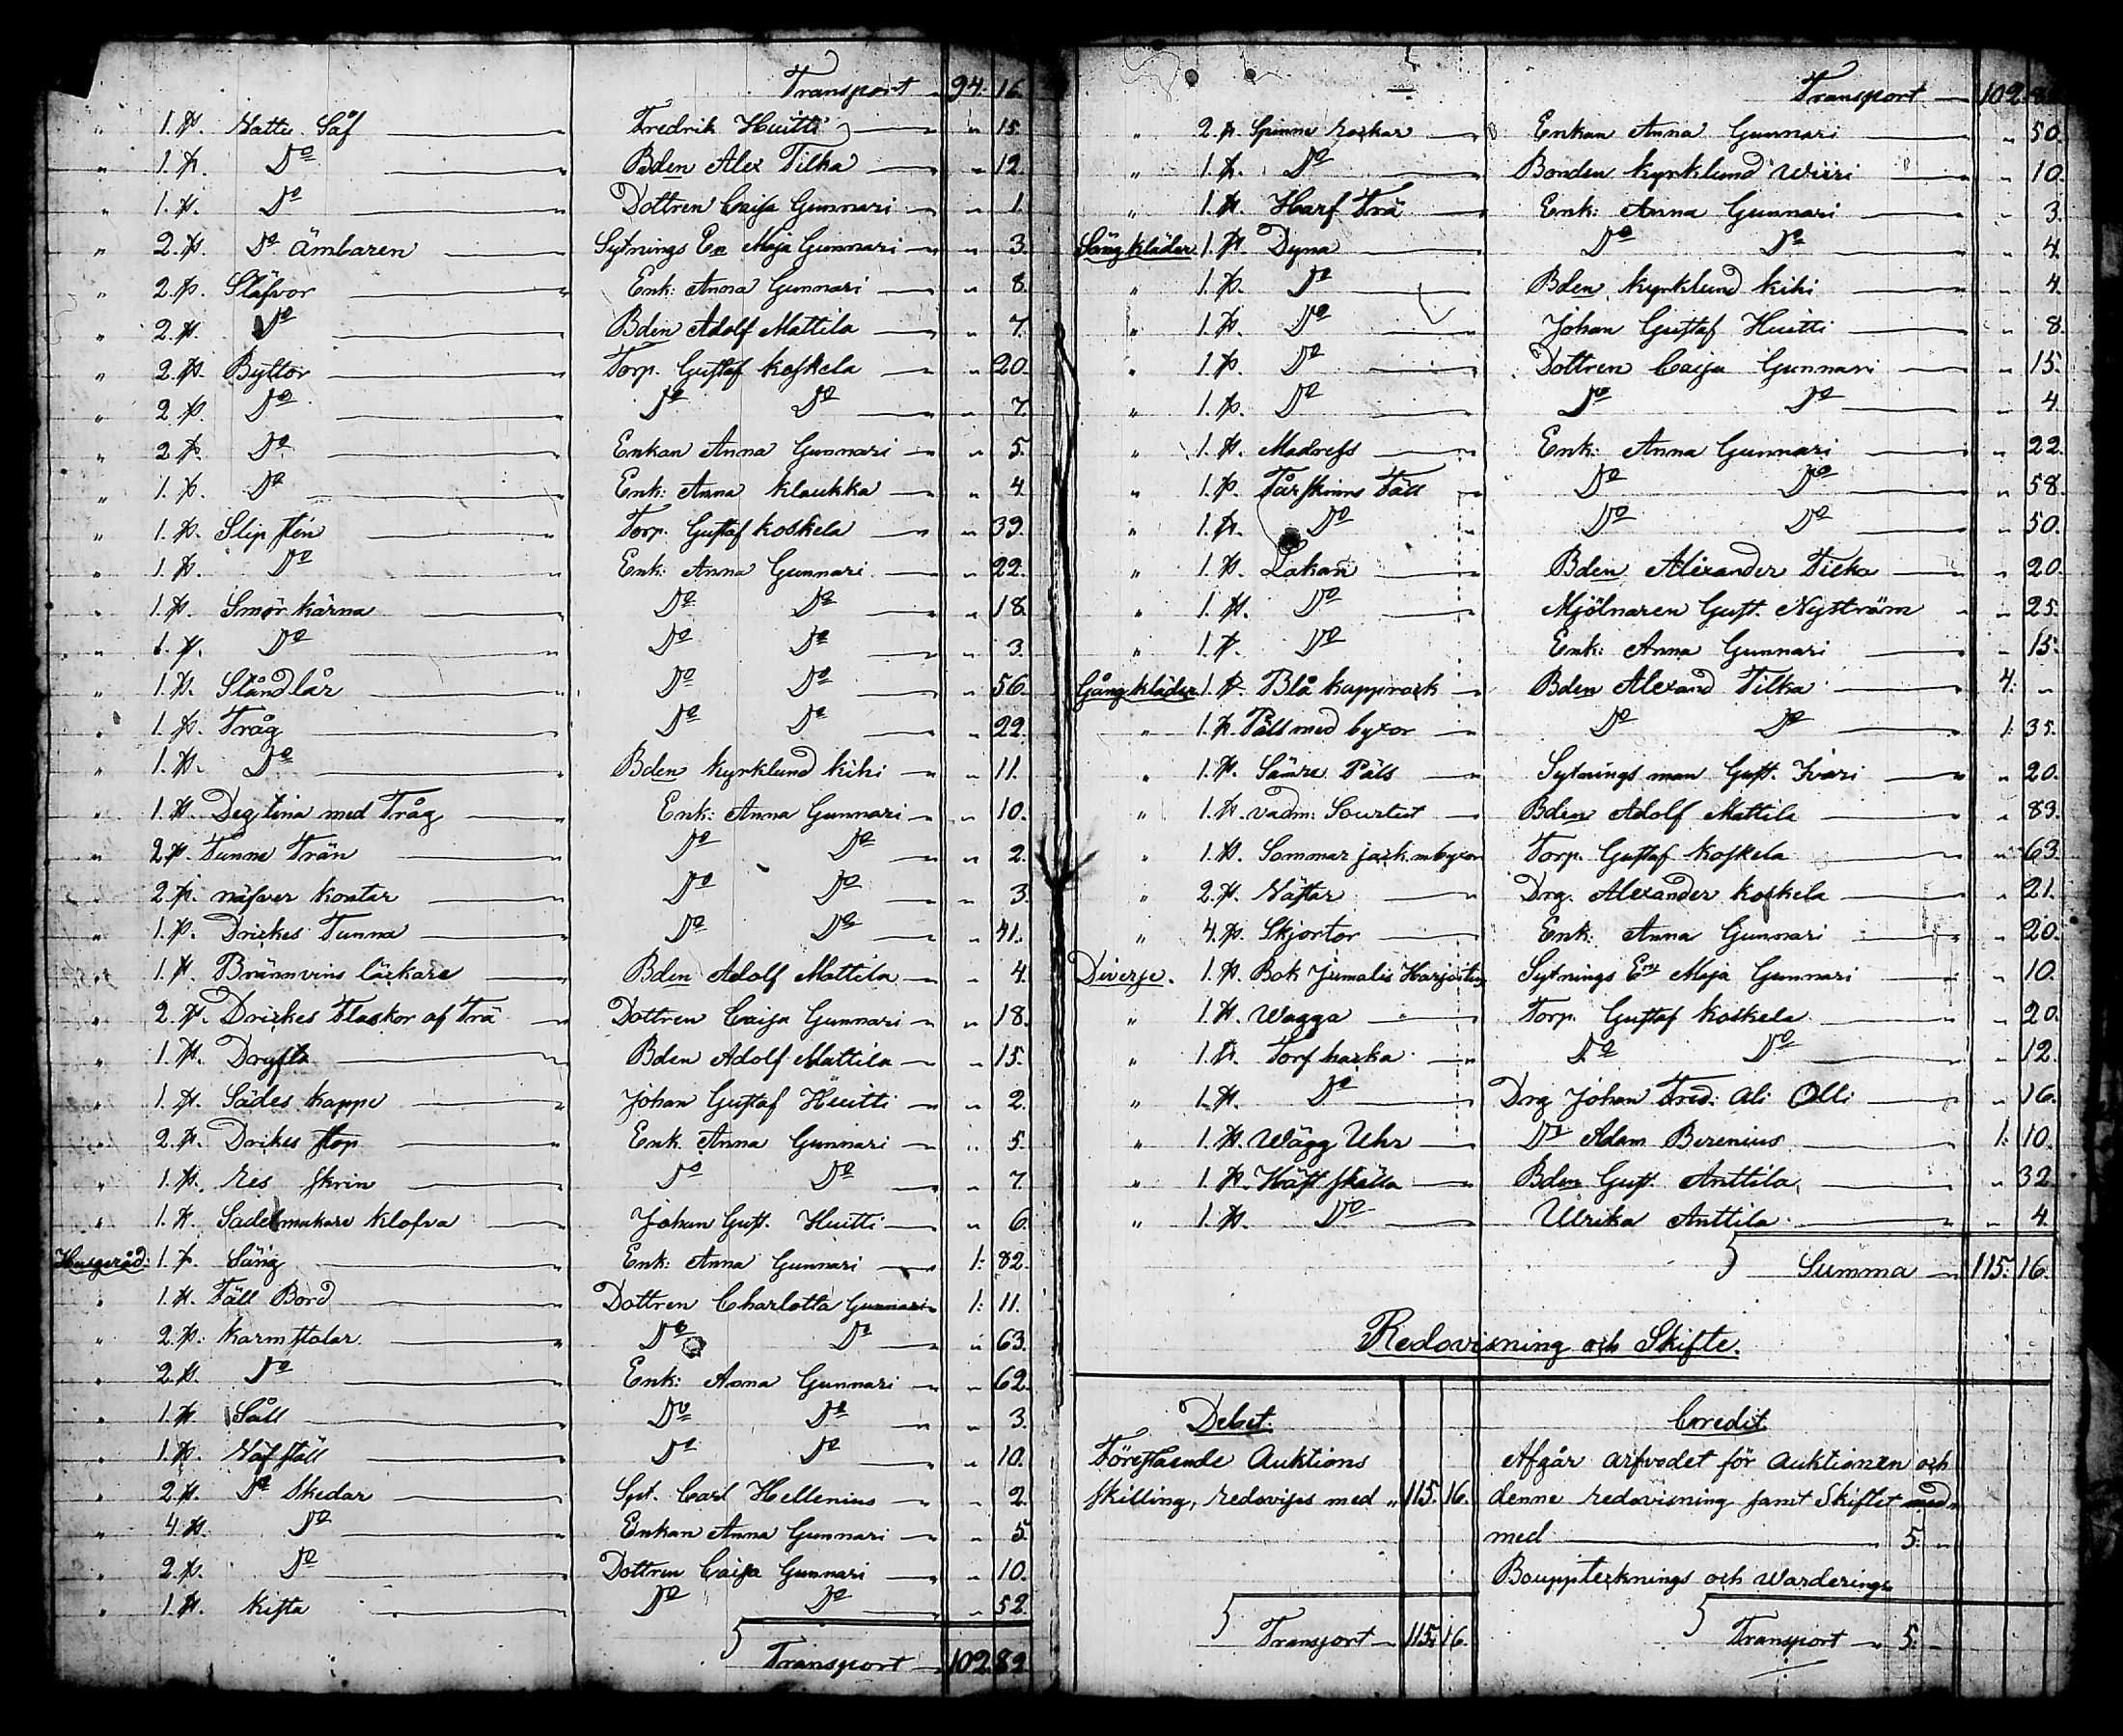 Transport 94. 16.
" 1. st. Vattu Så̊f Fredrik Huitti " 15.
" 1. st. Do Bden Alex Tilka " 12.
" 1. st. Do Dottren Caisa Gunnari " 1.
" 2. st. Do ämbaren Sytnings En Maja Gunnari " 3.
" 2. st. Släfvor Enk: Anna Gunnari " 8.
" 2. st. Do Bden Adolf Mattila " 7.
" 2. st. Byttor Torp. Gustaf Koskela " 20.
" 2 st. Do Do Do " 7.
" 2 st. Do Enkan Anna Gunnari " 5.
" 1. st. Do Enk: Anna Klaukka " 4
" 1. st. Slip sten Torp. Gustaf Koskela " 39.
" 1. st. Do Enk: Anna Gunnari " 22.
" 1. st. Smör kärna Do Do " 18.
" 1. st. Do Do Do " 3.
" 1. st. Ståndlår Do Do " 56.
" 1. st. Tråg Do Do " 22.
" 1. st. Do Bden Kyrklund Kihi " 11.
" 1. st. Deg tina med Tråg Enk: Anna Gunnari " 10.
" 2 st. Tunne Trän Do Do " 2.
" 2 st. näfver kontar Do Do " 3.
" 1. st. Drickes Tunna Do Do " 41.
" 1. st. Brännvins läckare Bden Adolf Mattila " 4.
" 2. st. Drickes Flaskor af Trä Dottren Caisa Gunnari " 18.
" 1. st. Dryfta Bden Adolf Mattila " 15.
" 1. st. Sädes kappe Johan Gustaf Huitti " 2.
" 2. st. Drikes stop Enk. Anna Gunnari " 5.
" 1. st. res skrin Do Do " 7.
" 1. st. Sadelmakare Klofva Johan Gust. Huitti " 6.
Husgeråd: 1. st. Säng Enk: Anna Gunnari 1: 82.
" 1. st. Fäll Bord Dottren Charlotta Gunnari 1: 11.
" 2. st. karm stolar Do Do " 63.
" 2. st. Do Enk: Anna Gunnari " 62.
" 1. st. Såll Do Do " 3.
" 1. st. Väf ställ Do Do " 10.
" 2. st. Do Skedar Syt. Carl Hellenius " 2.
" 4. st. Do Enkan Anna Gunnari " 5.
" 2. st. Do Dottren Caisa Gunnari " 10.
" 1. st. Kista Do Do " 52
Transport 102. 82
Transport 102. 82
" 2. st. Spinne rockar Enkan Anna Gunnari " 50.
" 1. st. Do Bonden Kyrklund Wiiri " 10.
" 1. st. Harf Trä Enk: Anna Gunnari " 3.
Sängkläder. 1. st. Dyna Do Do " 4.
" 1. st. Do Bden Kyrklund Kihi " 4.
" 1. st. Do Johan Gustaf Huitti " 8.
" 1. st. Do Dottren Caisa Gunnari " 15.
" 1. st. Do Do Do " 4
" 1. st. Madrass Enk: Anna Gunnari " 22.
" 1. st. Fårskinns Fäll Do Do " 58.
" 1. st. Do Do Do " 50.
" 1. st. Lakan Bden Alexander Tilka " 20.
" 1. st. Do Mjölnaren Gust. Nyström " 25.
" 1. st. Do Enk: Anna Gunnari " 15.
Gångkläder 1. st. Blå kapprock Bden Alexand Tilka 4: "
" 1. st. Päls med byxor Do Do 1: 35.
" 1. st. Sämre Päls Sytnings man Gust. Ivari " 20.
" 1. st. vadm: Sourtut Bden Adolf Mattila " 83.
" 1. st. Sommar jack. m byxor Torp. Gustaf Koskela " 63.
" 2. st. Västar Drg. Alexander Koskela " 21.
" 4. st. Skjortor Enk: Anna Gunnari " 20.
Diverse. 1. st. Bok Jumalis Harjoitus Sytnings En Maja Gunnari " 10.
" 1. st. Wagga Torp. Gustaf Koskela " 20.
" 1. st. Torf hacka Do Do " 12.
" 1. st. Do Drg Johan Fred: Ali Olli " 16.
" 1. st. Wägg Uhr Do Adam Berenius 1: 10.
" 1. st. Häst skälla Bden Gust. Anttila " 32
" 1. st. Do Ulrika Anttila " 4.
Summa 115: 16.
Redovisning och Skifte.
Debet. Credit
Förestående Auktions
skilling, redovises med " 115. 16.
Transport 115. 16.
Afgår arfvodet för auktionen och
denne redovisning samt Skiftet med
med 5. "
Bouppteknings och Warderings
Transport 5. "